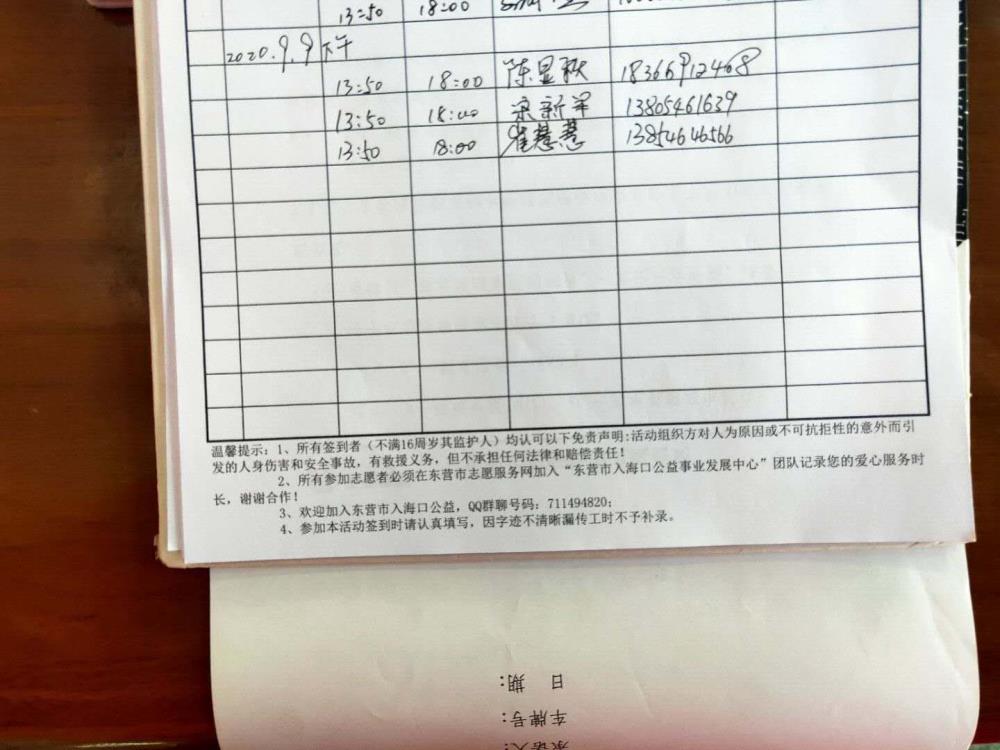 13:50 18:00
2020.9.9下午
13:50 18:00 陈显秋 18366912468
13:50 18:00 宋新军 13805461639
13:50 18:00 崔慧慧 13854646566
温馨提示：1、所有签到者（不满16周岁其监护人）均认可以下免责声明:活动组织方对人为原因或不可抗拒性的意外而引
发的人身伤害和安全事故，有救援义务，但不承担任何法律和赔偿责任！
2、所有参加志愿者必须在东营市志愿服务网加入“东营市入海口公益事业发展中心”团队记录您的爱心服务时
长，谢谢合作！
3、欢迎加入东营市入海口公益，QQ群聊号码：711494820；
4、参加本活动签到时请认真填写，因字迹不清晰漏传工时不予补录。
日 期：
车牌号：
承诺人：